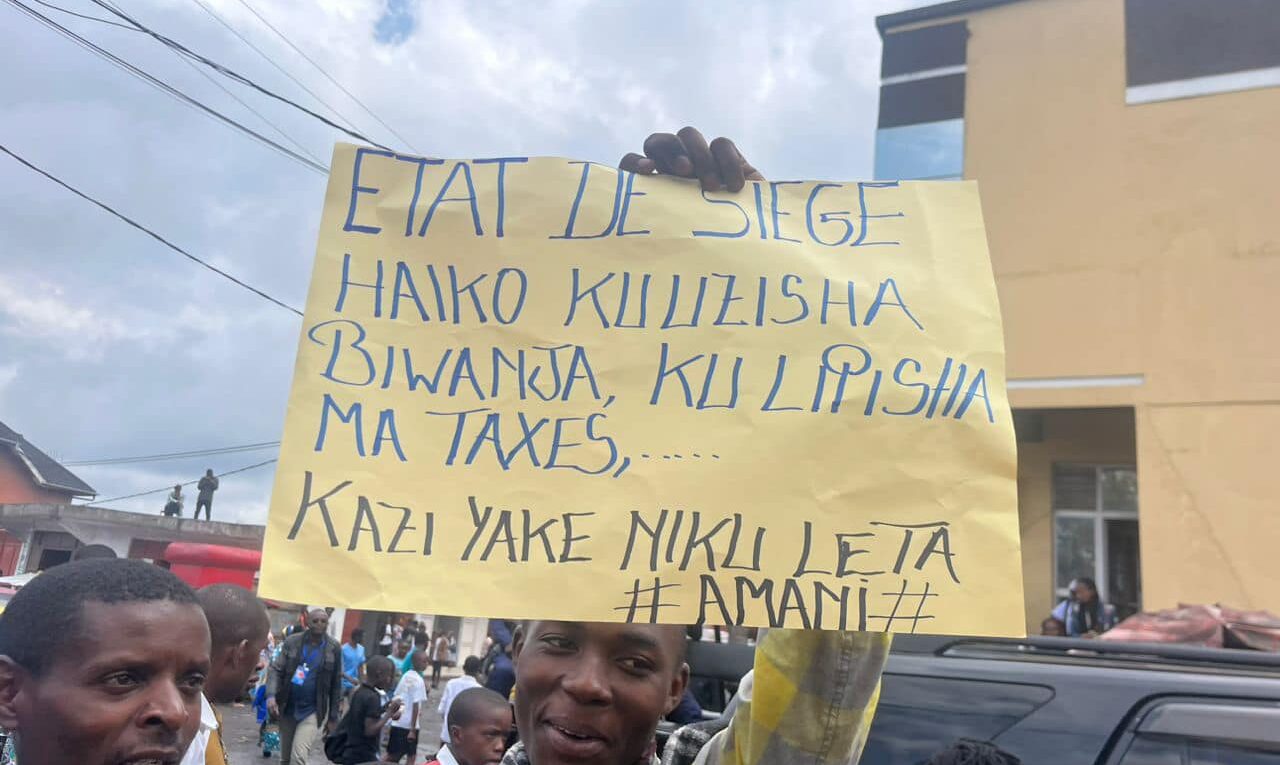 ETAT DE SIEGE
HAIKO KUUZISHA
BIWANJA, KU LIPISHA
MA TAXES,.....
KAZI YAKE NIKU LETA
#AMANI#